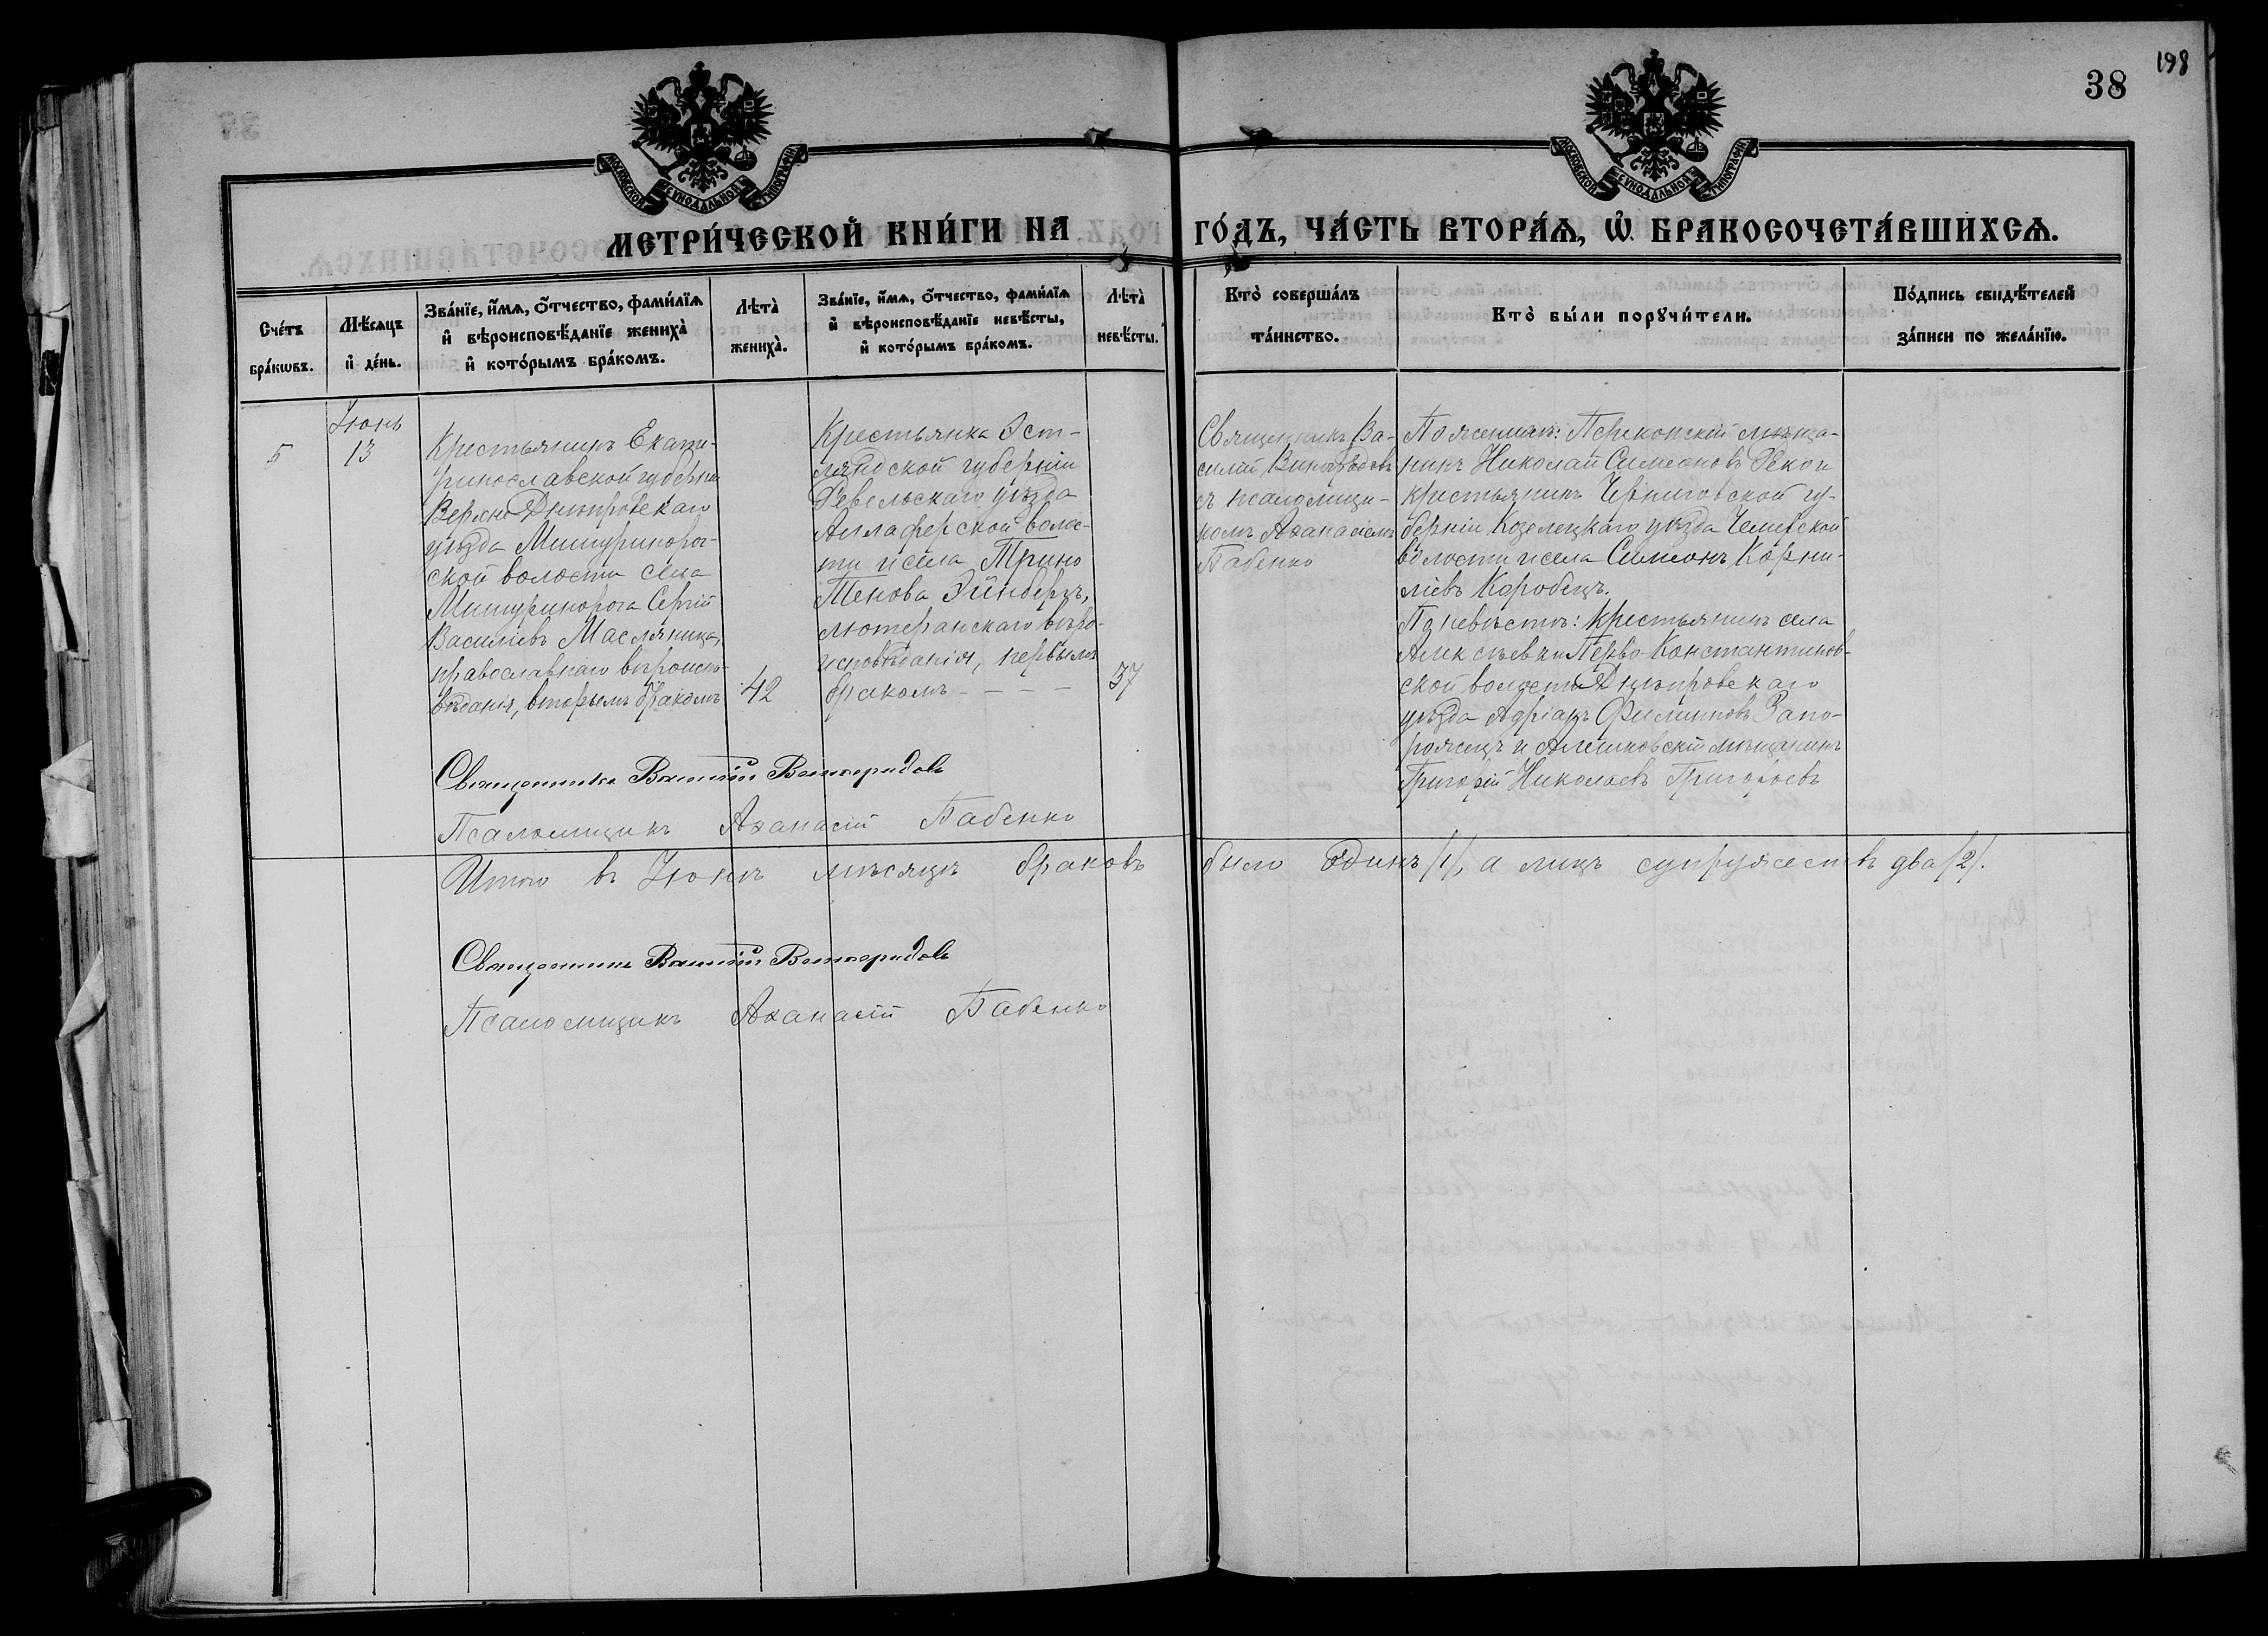 198
38
МОСКОВСКОЙ СУНОДАЛЬНОЙ ТИПОГРАФІИ
МОСКОВСКОЙ СУНОДАЛЬНОЙ ТИПОГРАФІИ
МЕТРИ́ЧЕСКОЙ КНИ́ГИ НА ГО́ДЪ, ЧА́СТЬ ВТОРА́Ѧ, Ѡ҆ БРАКОСОЧЕТА́ВШИХСѦ.
Сче́тъ
бра́кѡвъ.
Мѣ́сѧцъ
и҆ де́нь.
Зва́нїе, и҆́мѧ, ѻ҆́тчество, фами́лїѧ
и҆ вѣроисповѣ́данїе жениха̀
и҆ кото́рымъ бра́комъ.
Лѣта̀
жениха̀.
Зва́нїе, и҆́мѧ, ѻ҆́тчество, фами́лїѧ
и҆ вѣроисповѣ́данїе невѣ́сты,
и҆ кото́рымъ бра́комъ.
Лѣта̀
невѣ́сты.
Кто̀ соверша́лъ
та́инство.
Кто̀ бы́ли порꙋчи́тели.
По́дпись свидѣ́телей
за́писи по жела́нїю.
5
Іюнь
13
Крестьянинъ Екате-
ринославской губерніи
Верхне Днѣпровскаго
уѣзда Мишуринорог-
ской волости села
Мишуринорога Сергій
Василіевъ Масляница,
православнаго вѣроиспо-
вѣданія, вторымъ бракомъ
42
Крестьянка Эст-
ляндской губерніи
Ревельскаго уѣзда
Аллаферской волос-
ти и села Трино
Тенова Эйнбергъ,
лютеранскаго вѣро-
исповѣданія, первымъ
бракомъ - - - -
37
Священникъ Ва-
силій Виноградовъ
съ псаломщи-
комъ Аѳанасіемъ
Бабенко
По женихѣ: Перекопскій мѣща-
нинъ Николай Симеоновъ Рекои
крестьянинъ Черниговской гу-
берніи Козелецкаго уѣзда Чемерской
волости и села Симеонъ Корни-
ліевъ Коробецъ.
По невѣстѣ: крестьянинъ села
Алексѣевки Перво-Константинов-
ской волости Днѣпровскаго
уѣзда Адріанъ Филипповъ Запо-
рожецъ и Алешковскій мѣщанинъ
Григорій Николаевъ Григорьевъ
Священникъ Василій Виноградовъ
Псаломщикъ Аѳанасій Бабенко
Итого въ Іюнѣ мѣсяцѣ браковъ было одинъ /1/, а лицъ супружествъ два /2/.
Священникъ Василій Виноградовъ
Псаломщикъ Аѳанасій Бабенко